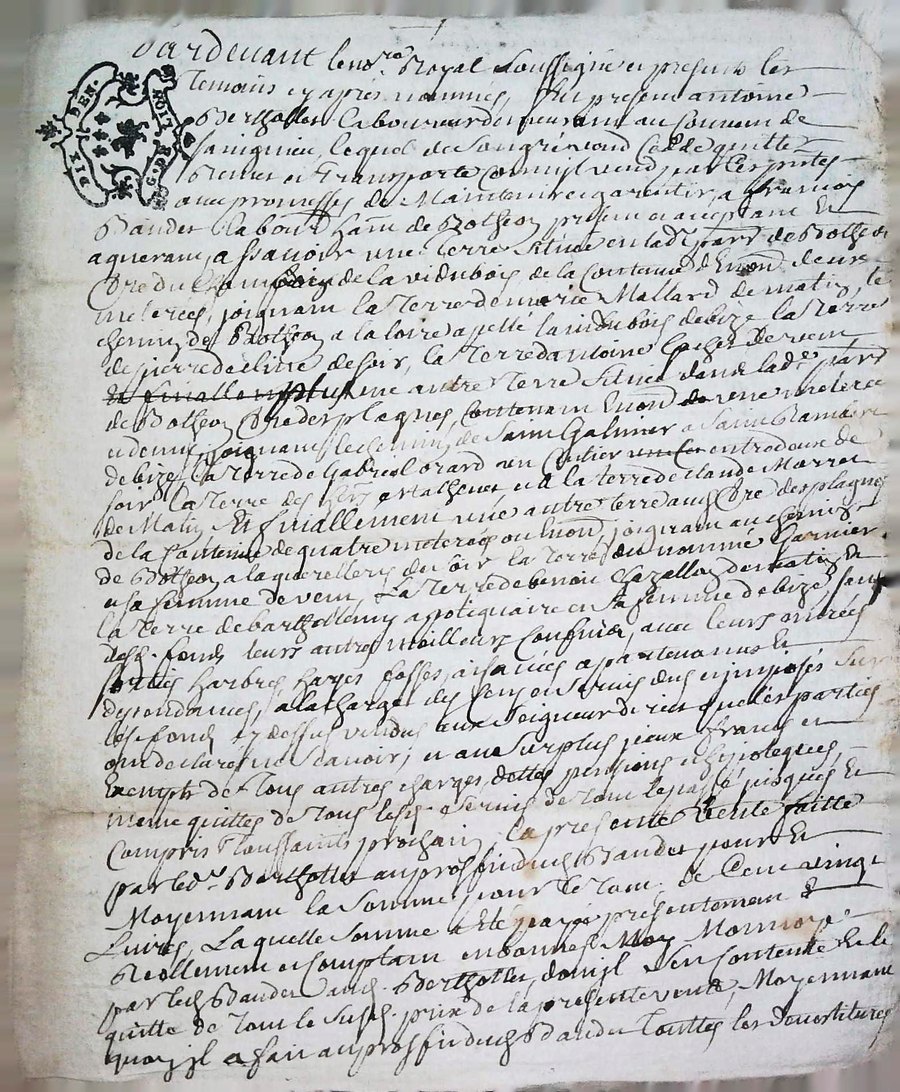 Pardevant le no.re Royal Soussigné et presents les
Temoins cy apres nommes, fut present antoine
Berthollet laboureur demeurant au Couvent de
Savigneu, lequel de Son gré vend Cedde quitte
Remet et Transporte Comm'jl vend par Ces pntes
avec promesses de Maintenir et garentir, a francois
Baudet labour hant de Botheon present et acceptant Et
aquerant, a Scavoir une terre Située en lad. parr de Botheon
de la vidubois, de la Contenue d'Environ deux
meterées, joignant la Terre de marie Mallard de matin, le
chemin de Botheon a la loire appellé la vidubois de bize la Terre
de pierre delisse de soir, la Terre d'antoine de vent
Et finallement plus une autre Terre Située dans lad.e parr
de Botheon des plagnes, Contenant Environ une meterée
et demie, joignant le chemin de Saint Galmier a Saint Rambert
de bize, la Terre de Gabriel orard un Sentier entredeux de
soir la Terre des et a la terre de Claude
de Matin Et finallement une autre Terre aud. des plagnes
de la Contenue de quatre meterées ou Environ, joignant au chemin
de Botheon a la querellerie de Soir la Terre du nommé Garnier
et Sa femme de vent, la Terre de benoit de matin Et
la Terre de barthollemy apotiquaire et Sa femme de bize, Sauf
desd. fonds leurs autres meilleurs Confins, avec leurs entrées
Sorties harbres hayes fosses, aisances apartenances Et
dependances, a la charge des Cens et Servis dus et imposés Sur
lesd. fonds cy dessus vendus aux Seigneurs directs que les parties
ont declaré ne Scavoir, et au Surplus jceux francs et
Exempts de Tous autres charges, dettes, pensions et hipoteques,
meme quittes de Tous lesd. Servis de Tout le passé jusques Et
Compris Toussaints prochain. la presente Vente faitte
par led. Berthollet au proffit dud. Baudet pour Et
Moyennant la Somme pour le Tout de Cent vingt
Livres, Laquelle Somme a Eté payée presentement &
Reellement et Comptant en bonne Monnoye
par led. Baudet aud. Berthollet, dont jl S'en Contente En le
quitte de Tout le Susd. prix de la presente vente, Moyennant
quoy jl a fait au proffit dud. Baudet Touttes les Devestitures